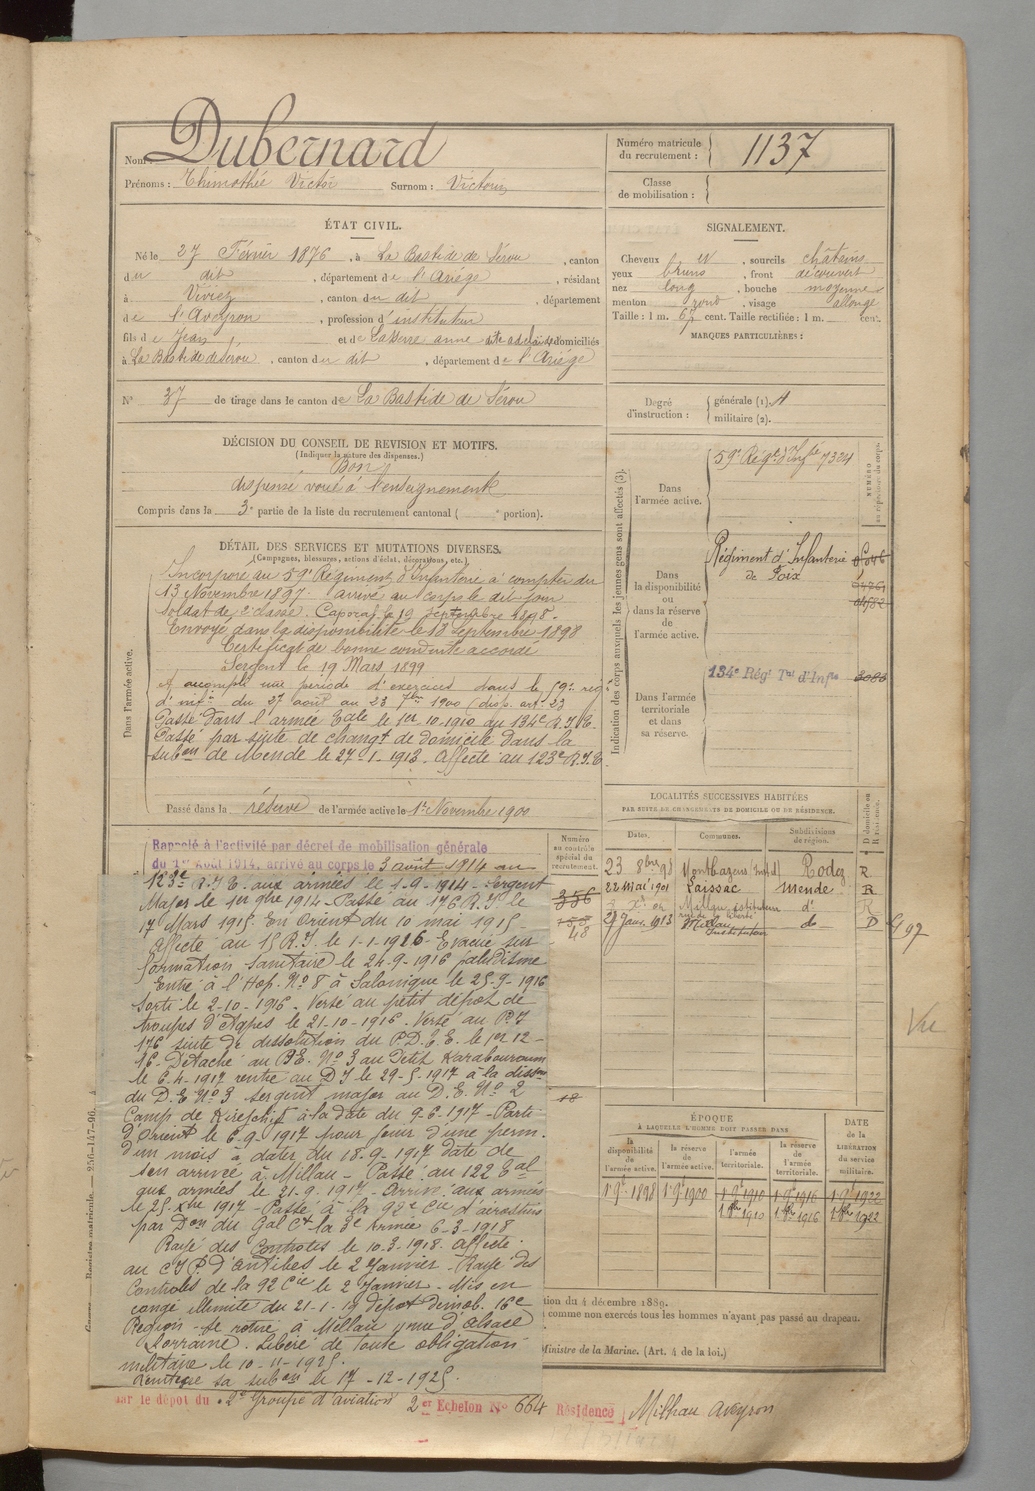 Nom : Dubernard
Prénoms : Thimothée Victor Surnom : Victorin
Numéro matricule du recrutement : 1137
Classe de mobilisation :
ÉTAT CIVIL.
Né le 27 Février 1876, à La Bastide de Sérou, canton
du dit, département de l'Ariége, résidant
à Viviez, canton du dit, département
de l'Aveyron, profession d'instituteur
fils de Jean et de Laserre anne dite adelaïde domiciliés
à La Bastide de Sérou, canton du dit, département de l'Ariége
N° 37 de tirage dans le canton de La Bastide de Sérou
SIGNALEMENT.
Cheveux et, sourcils châtains
yeux bruns, front découvert
nez long, bouche moyenne
menton rond, visage allongé
Taille : 1 m. 67 cent. Taille rectifiée : 1 m. cent.
MARQUES PARTICULIÈRES :
Degré d'instruction : générale (1). 4
militaire (2).
DÉCISION DU CONSEIL DE REVISION ET MOTIFS.
(Indiquer la nature des dispenses.)
Bon
dispensé voué à l'enseignement
Compris dans la 3e partie de la liste du recrutement cantonal ( e portion).
DÉTAIL DES SERVICES ET MUTATIONS DIVERSES.
(Campagnes, blessures, actions d'éclat, décorations, etc.)
Dans l'armée active.
Incorporé au 59e Régiment d'Infanterie à compter du
13 Novembre 1897. arrivé au corps le dit jour
soldat de 2e classe. Caporal le 19 Septembre 1898.
Envoyé dans la disponibilité le 18 Septembre 1898
Certificat de bonne conduite accordé
Sergent le 19 Mars 1899
A accompli une période d'exercices dans le 59e rég
d'infie du 27 août au 23 7bre 1900 (disp. art. 23
Passé dans l'armée Tale le 1er. 10. 1910 au 134e R.I.T.
Passé par suite de changt de domicile dans la
subon de Mende le 27-1-1913. Affecté au 123e R.I.T.
Passé dans la réserve de l'armée active le 1er Novembre 1900
Indication des corps auxquels les jeunes gens sont affectés (3).
NUMÉRO au répertoire du corps.
Dans l'armée active. 59e Régt d'Infie 7324
Dans la disponibilité ou dans la réserve de l'armée active.
Régiment d'Infanterie de Foix
Dans l'armée territoriale et dans sa réserve.
134e Régt Tal d'Infie 3083
LOCALITÉS SUCCESSIVES HABITÉES
PAR SUITE DE CHANGEMENTS DE DOMICILE OU DE RÉSIDENCE.
Dates. Communes. Subdivisions de région. D domicile ou R résidence.
23 8bre 98 Montbazens (inst) Rodez R
22 Mai 1901 Laissac Mende R
Millau instituteur d° R
27 Janv. 1913 Millau Instituteur do D
Vu
Numéro au contrôle spécial du recrutement.
356
48
18
Rappelé à l'activité par décret de mobilisation générale
du 1er Août 1914, arrivé au corps le 3 août 1914 au
123e R.I.T. aux armées le 1-9-1914 - Sergent
Major le 1er 9bre 1914 - Passé au 176 R.I. le
17 Mars 1915 En Orient du 10 mai 1915
affecté au 15 R.I. le 1-1-1916 - Evacué sur
formation sanitaire le 24-9-1916 paludisme
Entré à l'Hop. No 8 à Salonique le 25-9-1916
Sorti le 2-10-1916. Versé au petit dépot de
troupes d'étapes le 21-10-1916. Versé au
176 suite de dissolution du P.D.E.E. le 1er 12-
16 Détaché au D.E. No 3 au Petit Karabouroum
le 6-4-1917 rentré au D I le 29-5-1917 à la disson
du D.E No 3 sergent major au D.E. No 2
Camp de Kirechli à la date du 9-6-1917 - Parti
d'Orient le 6-9-1917 pour jouir d'une perm.
d'un mois à dater du 18-9-1917 date de
son arrivée à Millau - Passé au 122 Tal
aux armées le 21-9-1917 - Arrivé aux armées
le 25 Xbre 1917 - Passé à la 92e Cie d'aérostiers
par Don du Gal Ct la 3e Armée 6-3-1918
Rayé des contrôles le 10-3-1918. affecté
au C I P. d'antibes le 2 Janvier - Rayé des
Contrôles de la 92 Cie le 2 Janvier - Mis en
congé illimité du 21-1-19 dépot démob. 16e
Région - se retire à Millau rue d'alsace
Lorraine. Libéré de toute obligation
militaire le 10-11-1925.
Réintègre sa subon le 17-12-1925.
ÉPOQUE
À LAQUELLE L'HOMME DOIT PASSER DANS
la disponibilité de l'armée active. la réserve de l'armée active. l'armée territoriale. la réserve de l'armée territoriale. DATE de la LIBÉRATION du service militaire.
1er 9bre 1898 1er 9bre 1900 1er 9bre 1910 1er 9bre 1916 1er 9bre 1922
1er 8bre 1910 1er 8bre 1916 1er 8bre 1922
du 4 décembre 1889.
comme non exercés tous les hommes n'ayant pas passé au drapeau.
Ministre de la Marine. (Art. 4 de la loi.)
par le dépôt du 2e Groupe d'aviation 2er Echelon No 664 Résidence Milhau Aveyron